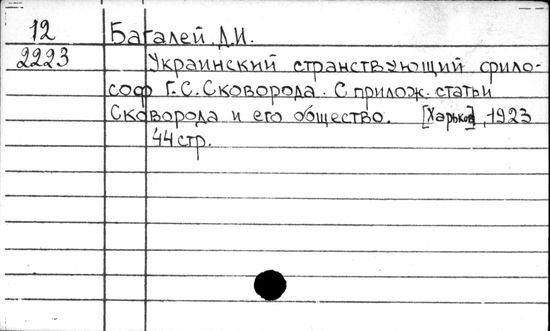 12 Багалей Д.И.
2223 Украинский странствующий фило-
соф Г.С.Сковорода. С прилож. статьи
Сковорода и его общество. [Харьков], 1923
44 стр.